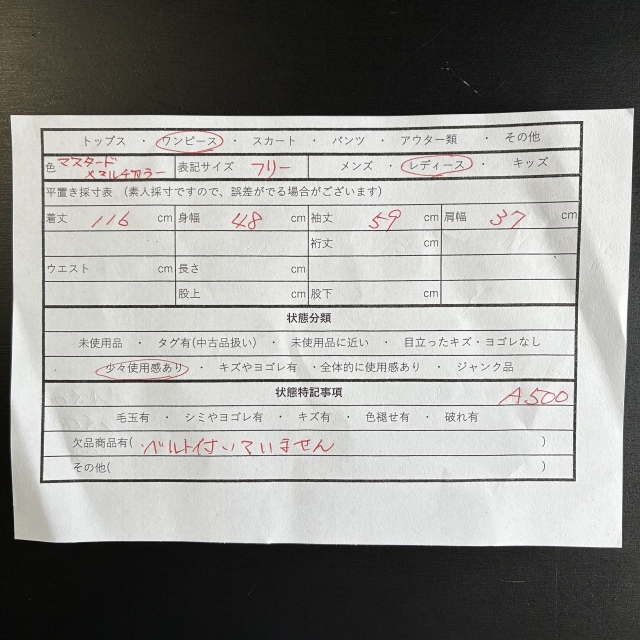 トップス ・ ワンピース ・ スカート ・ パンツ ・ アウター類 ・ その他
色 マスタード×マルチカラー 表記サイズ フリー メンズ ・ レディース ・ キッズ
平置き採寸表 (素人採寸ですので、誤差がでる場合がございます)
着丈 116 cm 身幅 48 cm 袖丈 59 cm 肩幅 37 cm
裄丈 cm
ウエスト cm 長さ cm
股上 cm 股下 cm
状態分類
未使用品 ・ タグ有(中古品扱い) ・ 未使用品に近い ・ 目立ったキズ・ヨゴレなし
少々使用感あり ・ キズやヨゴレ有 ・全体的に使用感あり ・ ジャンク品
状態特記事項 A500
毛玉有 ・ シミやヨゴレ有 ・ キズ有 ・ 色褪せ有 ・ 破れ有
欠品商品有( ベルト付いていません )
その他( )